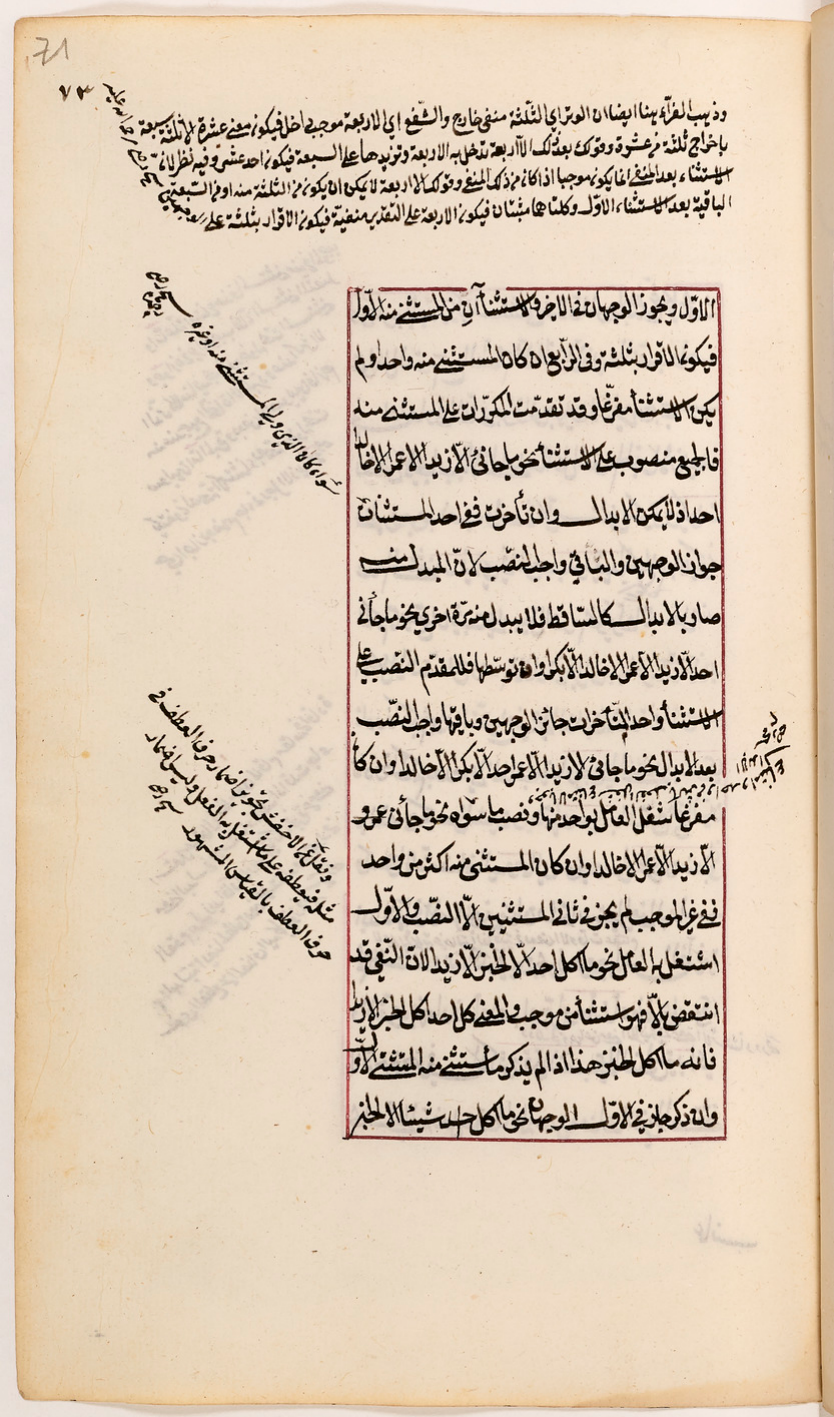 71
٧٣
وذهب الفرآء هنا ايضا ان الوتر اي الثلثة منفى خارج والشفع اي الاربعة موجب داخل فيكون معنى عشرة الا ثلثة سبعة
باخراج ثلثة من عشرة وقولك بعد ذلك الا اربعة تدخل به الاربعة وتزيدها على السبعة فيكون احد عشر وفيه نظر لان
الاستثناء بعد المنفى انما يكون موجبا اذا كان من ذلك المنفى وقولك الا اربعة لا يمكن ان يكون من الثلثة منه او من السبعة
الباقية بعد الاستثناء الاول وكلتاهما مثبتان فيكون الاربعة على التقدير منفية فيكون الاقرار بثلثة على
الاوّل ويجوز الوجهان في الاخر والاستثناآن من المستثنى منه الاوّل
فيكون الاقرار بثلثة وفى الرّابع ان كان المستثنى منه واحدا ولم
يكن الاستثنأ مفرّغا وقد تقدّمت المكرّرات على المستثنى منه
فالجميع منصوب على الاستثنأ نحو ما جانى الّا زيدا الا عمرا الا خالدا
احد اذ لا يمكن الابدال وان تأخرت ففى احد المستثنات
جواز الوجهين والباقي واجب النصب لانّ المبدل منه
صار بالابدال كالساقط فلا يبدل منه مرّة اخرى نحو ما جأنى
احد الّا زيدا الّا عمرا الا خالدا الّا بكرا وان توسّطها فللمقدّم النصب على
الاستثنأ واحد المتأخرات جائز الوجهين وباقيها واجب النصب
بعد الابدال نحو ما جانى الا زيدا الّا عمرا احد الّا بكرا الّا خالدا وان كا
مفرغا شغل العامل بواحد منها ونصب ما سواه نحو ما جأنى عمرو
الّا زيدا الّا عمرا الا خالدا وان كان المستثنى منه اكثر من واحد
ففى غير الموجب لم يجز في ثانى المستثنيين الّا النصب والاوّل
اشتغل به العامل نحو ما اكل احد الّا الخبز الّا زيدا لان النّفى قد
انتقض بالّا فهو استثنأ من موجب والمعنى كل احد اكل الخبز الا زيدا
فانه ما اكل الخبز هذا اذا لم يذكر ما استثنى منه المستثنى الاوّل
وان ذكر جاز في الاوّل الوجهان نحو ما اكل احد شيئا الا الخبز
سواء كان الذي ولى المستثنى منه او غيره
ونقل عن الاخفش تجويز اضمار حرف العطف في
مثله فيعطفه على ما اشتغل به الفعل وليس اضمار
حرف العطف بالقياس المشهور